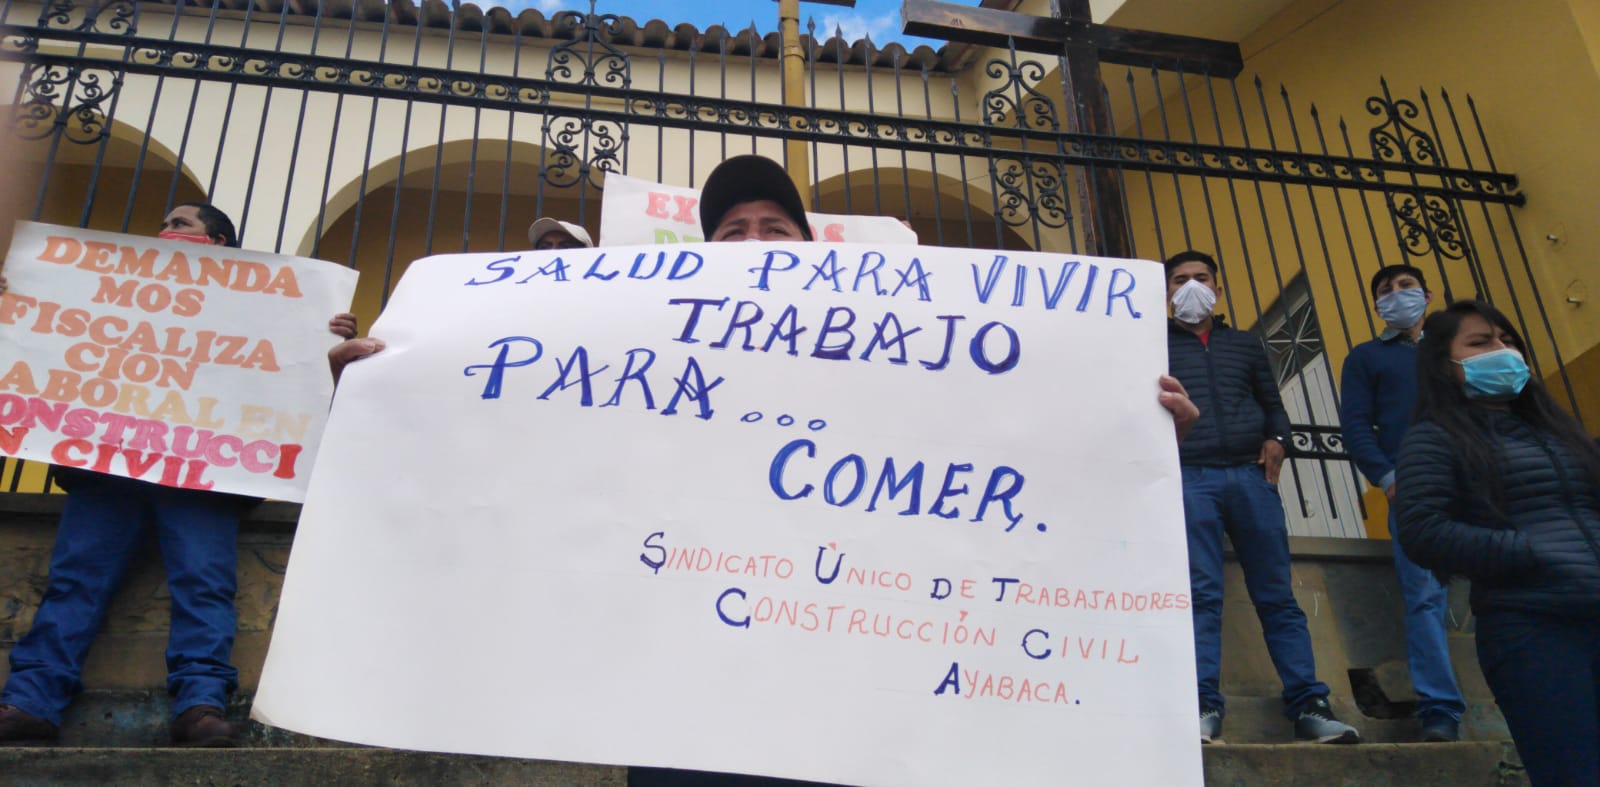 DEMANDA
MOS
FISCALIZA
CION
ABORAL EN
ONSTRUCCI
N CIVIL
SALUD PARA VIVIR
TRABAJO
PARA...
COMER.
SINDICATO ÚNICO DE TRABAJADORES
CONSTRUCCIÓN CIVIL
AYABACA.